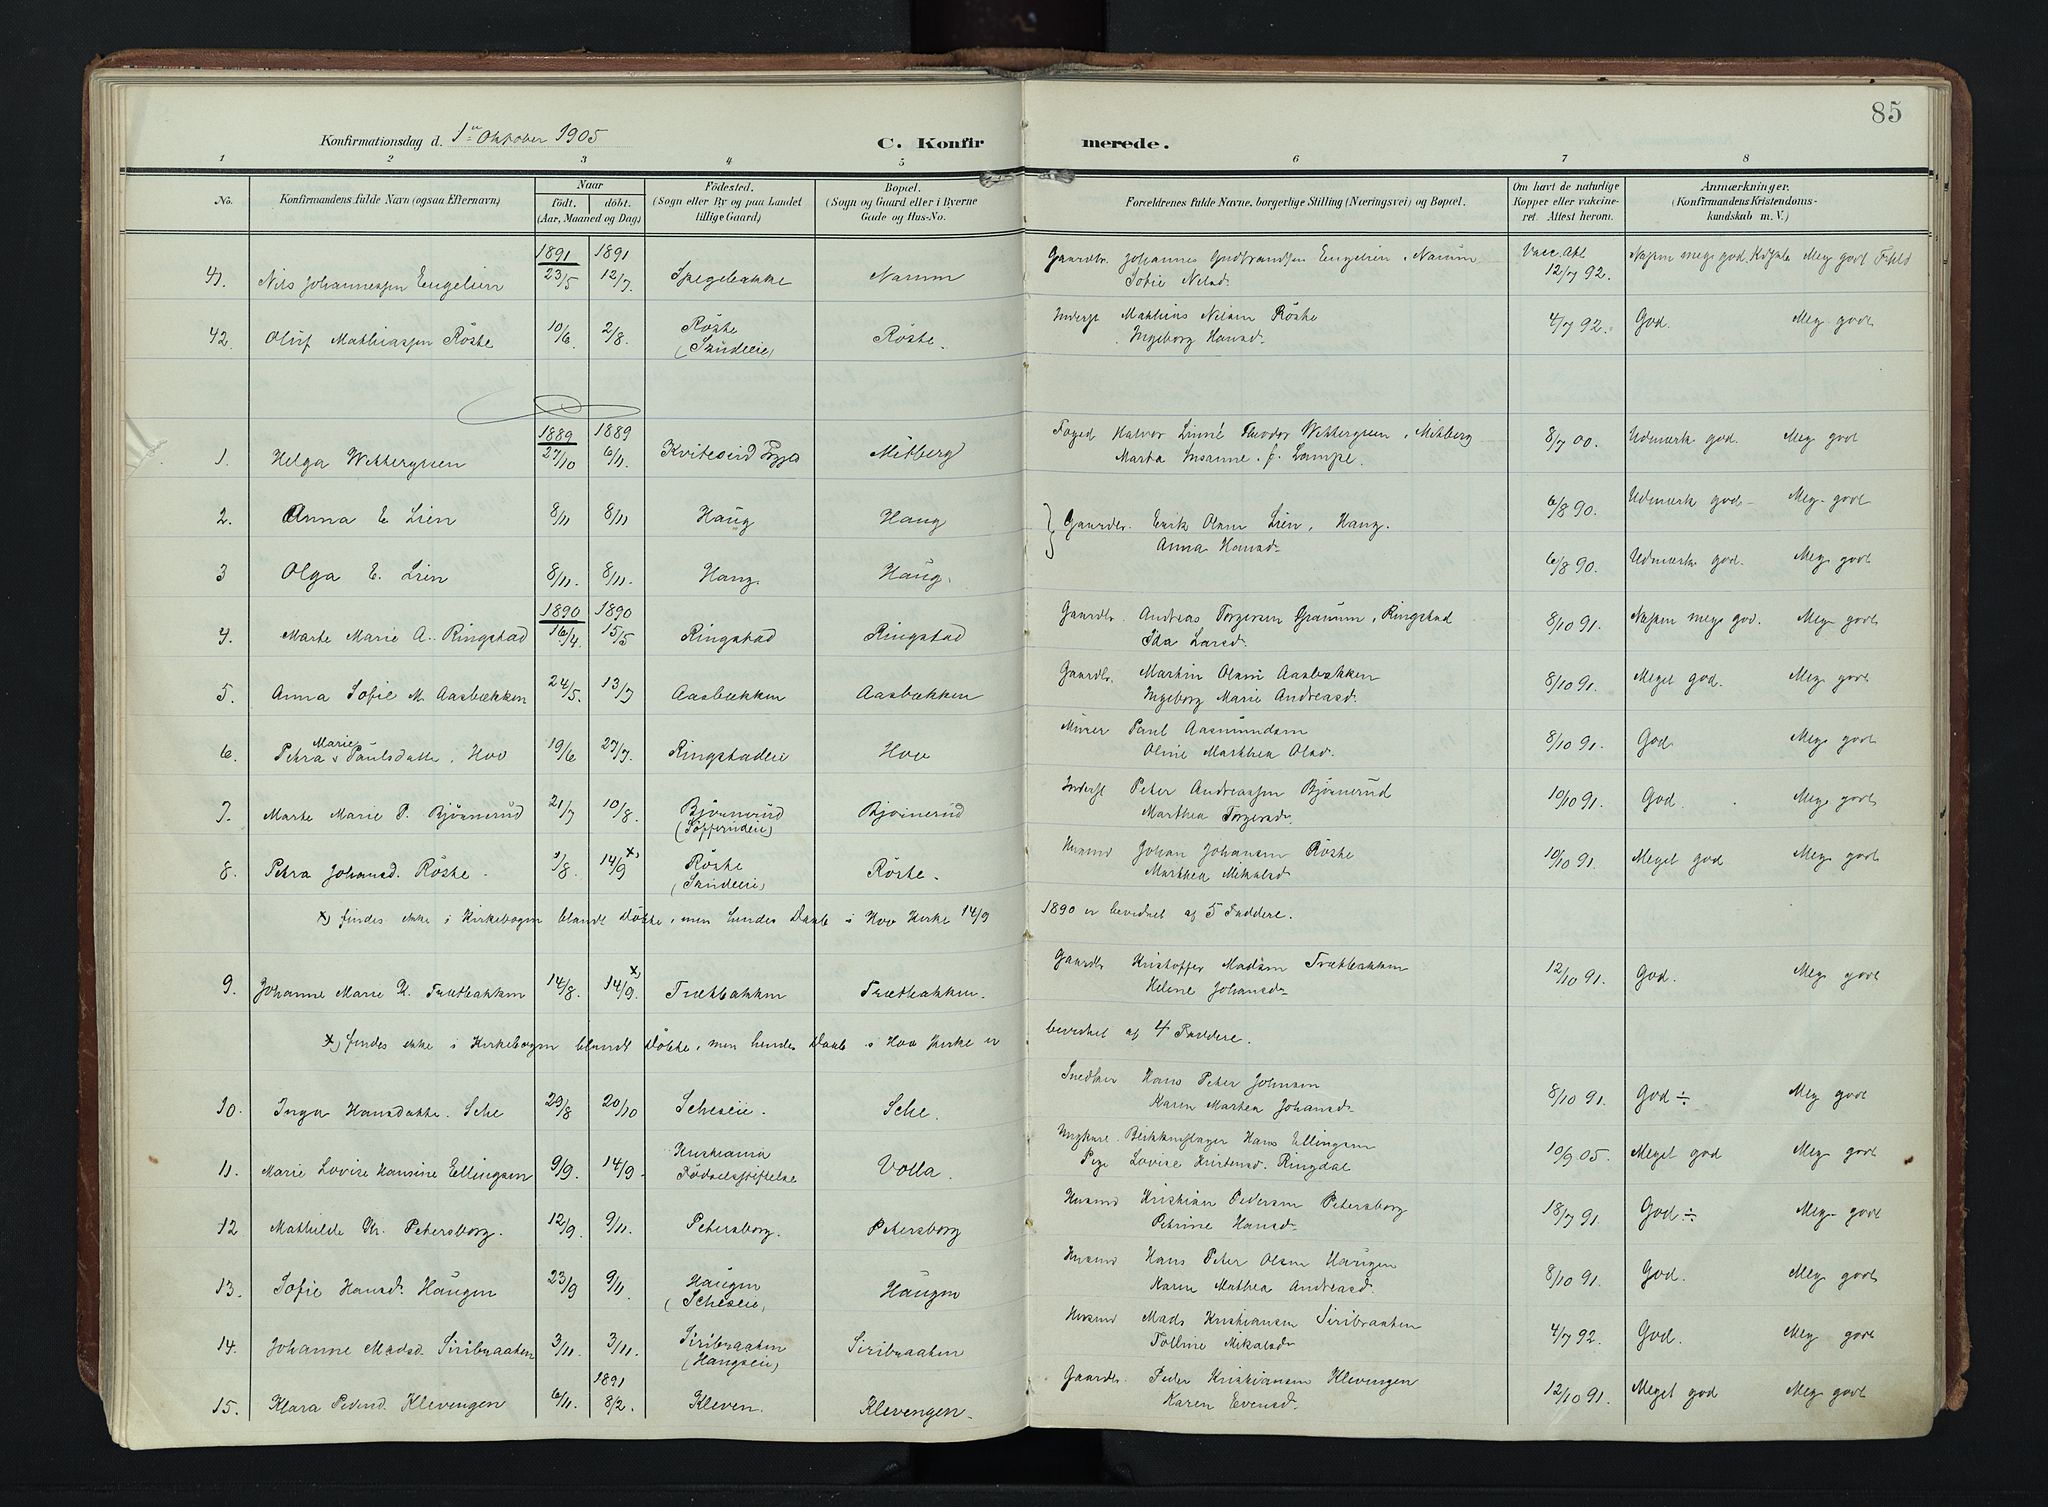 85
Konfirmationsdag d. 1ste Oktober 1905
C. Konfirmerede.
1 2 3 4 5 6 7 8
No.
Konfirmandens fulde Navn (ogsaa Efternavn)
Naar
født. døbt.
(Aar, Maaned og Dag)
Fødested.
(Sogn eller By og paa Landet
tillige Gaard)
Bopæl.
(Sogn og Gaard eller i Byerne
Gade og Hus-No.
Forældrenes fulde Navne, borgerlige Stilling (Næringsvei) og Bopæl.
Om havt de naturlige
Kopper eller vakcine-
ret. Attest herom.
Anmærkninger.
(Konfirmandens Kristendoms-
kundskab m. V.)
1891 1891
41. Nils Johannessen Engelien 23/5 12/7 Spegebakke Narum Gaardbr. Johannes Gudbrandsen Engelien, Narum Vacc. Att. 12/7 92. Næsten meg. god. Meg. godt Forhold
Sofie Nilsd.
42. Oluf Mathiassen Röste 10/6 2/8. Röste (Sandeeie) Röste. Inderst Mathias Nilsen Röste 4/7 92. God. Meg. godt
Ingeborg Hansd.
1889 1889
1. Helga Wettergreen 27/10 6/11. Kviteseid Mitberg Foged Halvor Linné Theodor Wettergreen, Mitberg 8/7 00. Udmærk god. Meg godt
Marta Susanne f. Lampe.
2. Anna E Lien 8/11 8/11 Haug Haug Gaardbr. Erik Olsen Lien, Haug. 6/8 90. Udmærk god. Meg. godt
Anna Hansd.
3 Olga E. Lien 8/11. 8/11. Haug. Haug. 6/8 90. Udmærk god. Meg. godt
1890 1890
4. Marte Marie A. Ringstad 16/4 15/5 Ringstad Ringstad Gaardbr. Andreas Torgersen Granum, Ringstad 8/10 91. Næsten meg. god. Meg godt
Ida Larsd.
5. Anna Sofie M. Aasbækken 24/5. 13/7 Aasbækken Aasbækken Gaardbr. Martin Olsen Aasbækken 8/10 91. Meget god. Meg. godt
Ingeborg Marie Andreasd.
6. Petra Marie Paulsdatter, Hov 19/6 27/7. Ringstadeie Hov Murer Paul Aasmundsen 8/10 91. God Meg godt
Oline Marthea Olsd.
7. Marte Marie P. Bjørnerud 21/7 10/8. Bjørnerud (Sofferudeie) Bjørnerud Inderst Peter Andreassen Bjørnerud 10/10 91. God. Meg. godt
Marthea Torgersd.
8. Petra Johansd. Röste. 1/8. 14/9 x) Röste (Sandeeie) Röste. Husmd Johan Johansen Röste 10/10 91. Meget god Meg godt
Marthea Mikalsd
x) findes ikke i Kirkebogen blandt Döbte, men hendes Daab i Hov Kirke 14/9 1890 er bevidnet af 5 Faddere.
9. Johanne Marie K. Trætbakken 14/8. 14/9. x) Trætbakken Trætbakken. Gaardbr Kristoffer Madsen Trætbakken 12/10 91. God. Meg godt
Helene Johansd.
x) findes ikke i Kirkebogen blandt Döbte, men hendes Daab i Hov Kirke er bevidnet af 4 Faddere.
10. Inga Hansdatter. Sche 29/8 20/10 Scheseie. Sche. Snedker Hans Peter Johnsen 8/10 91. God ÷ Meg godt
Karen Marthea Johansd.
11. Marie Lovise Hansine Ellingsen 9/9. 14/9. Kristiania Fødselsstiftelse Volla. Ungkarl. Blikkenslager Hans Ellingsen 10/9 05. Meget god Meg. godt
Pige Lovise Kristensd. Ringdal
12 Mathilde Kr. Petersborg. 12/9. 9/11. Petersborg. Petersborg Husmd Kristian Pedersen Petersborg 18/7 91. God ÷ Meg. godt
Petrine Hansd.
13. Sofie Hansd. Haugen 23/9 9/11. Haugen (Scheseie) Haugen Husmd Hans Peter Olsen Haugen 8/10 91. God. Meg godt
Karen Mathea Andreasd.
14. Johanne Madsd. Siribraaten 3/11. 3/11. Siribraaten (Haugseie) Siribraaten Husmd Mads Kristiansen Siribraaten 4/7 92. God. Meg. godt
Tolline Mikalsd
1891
15. Klara Pedersd. Klevengen 6/11. 8/2. Kleven. Klevengen. Gaardbr. Peder Kristiansen Klevengen 12/10 91. Meget god Meg godt
Karen Evensd.